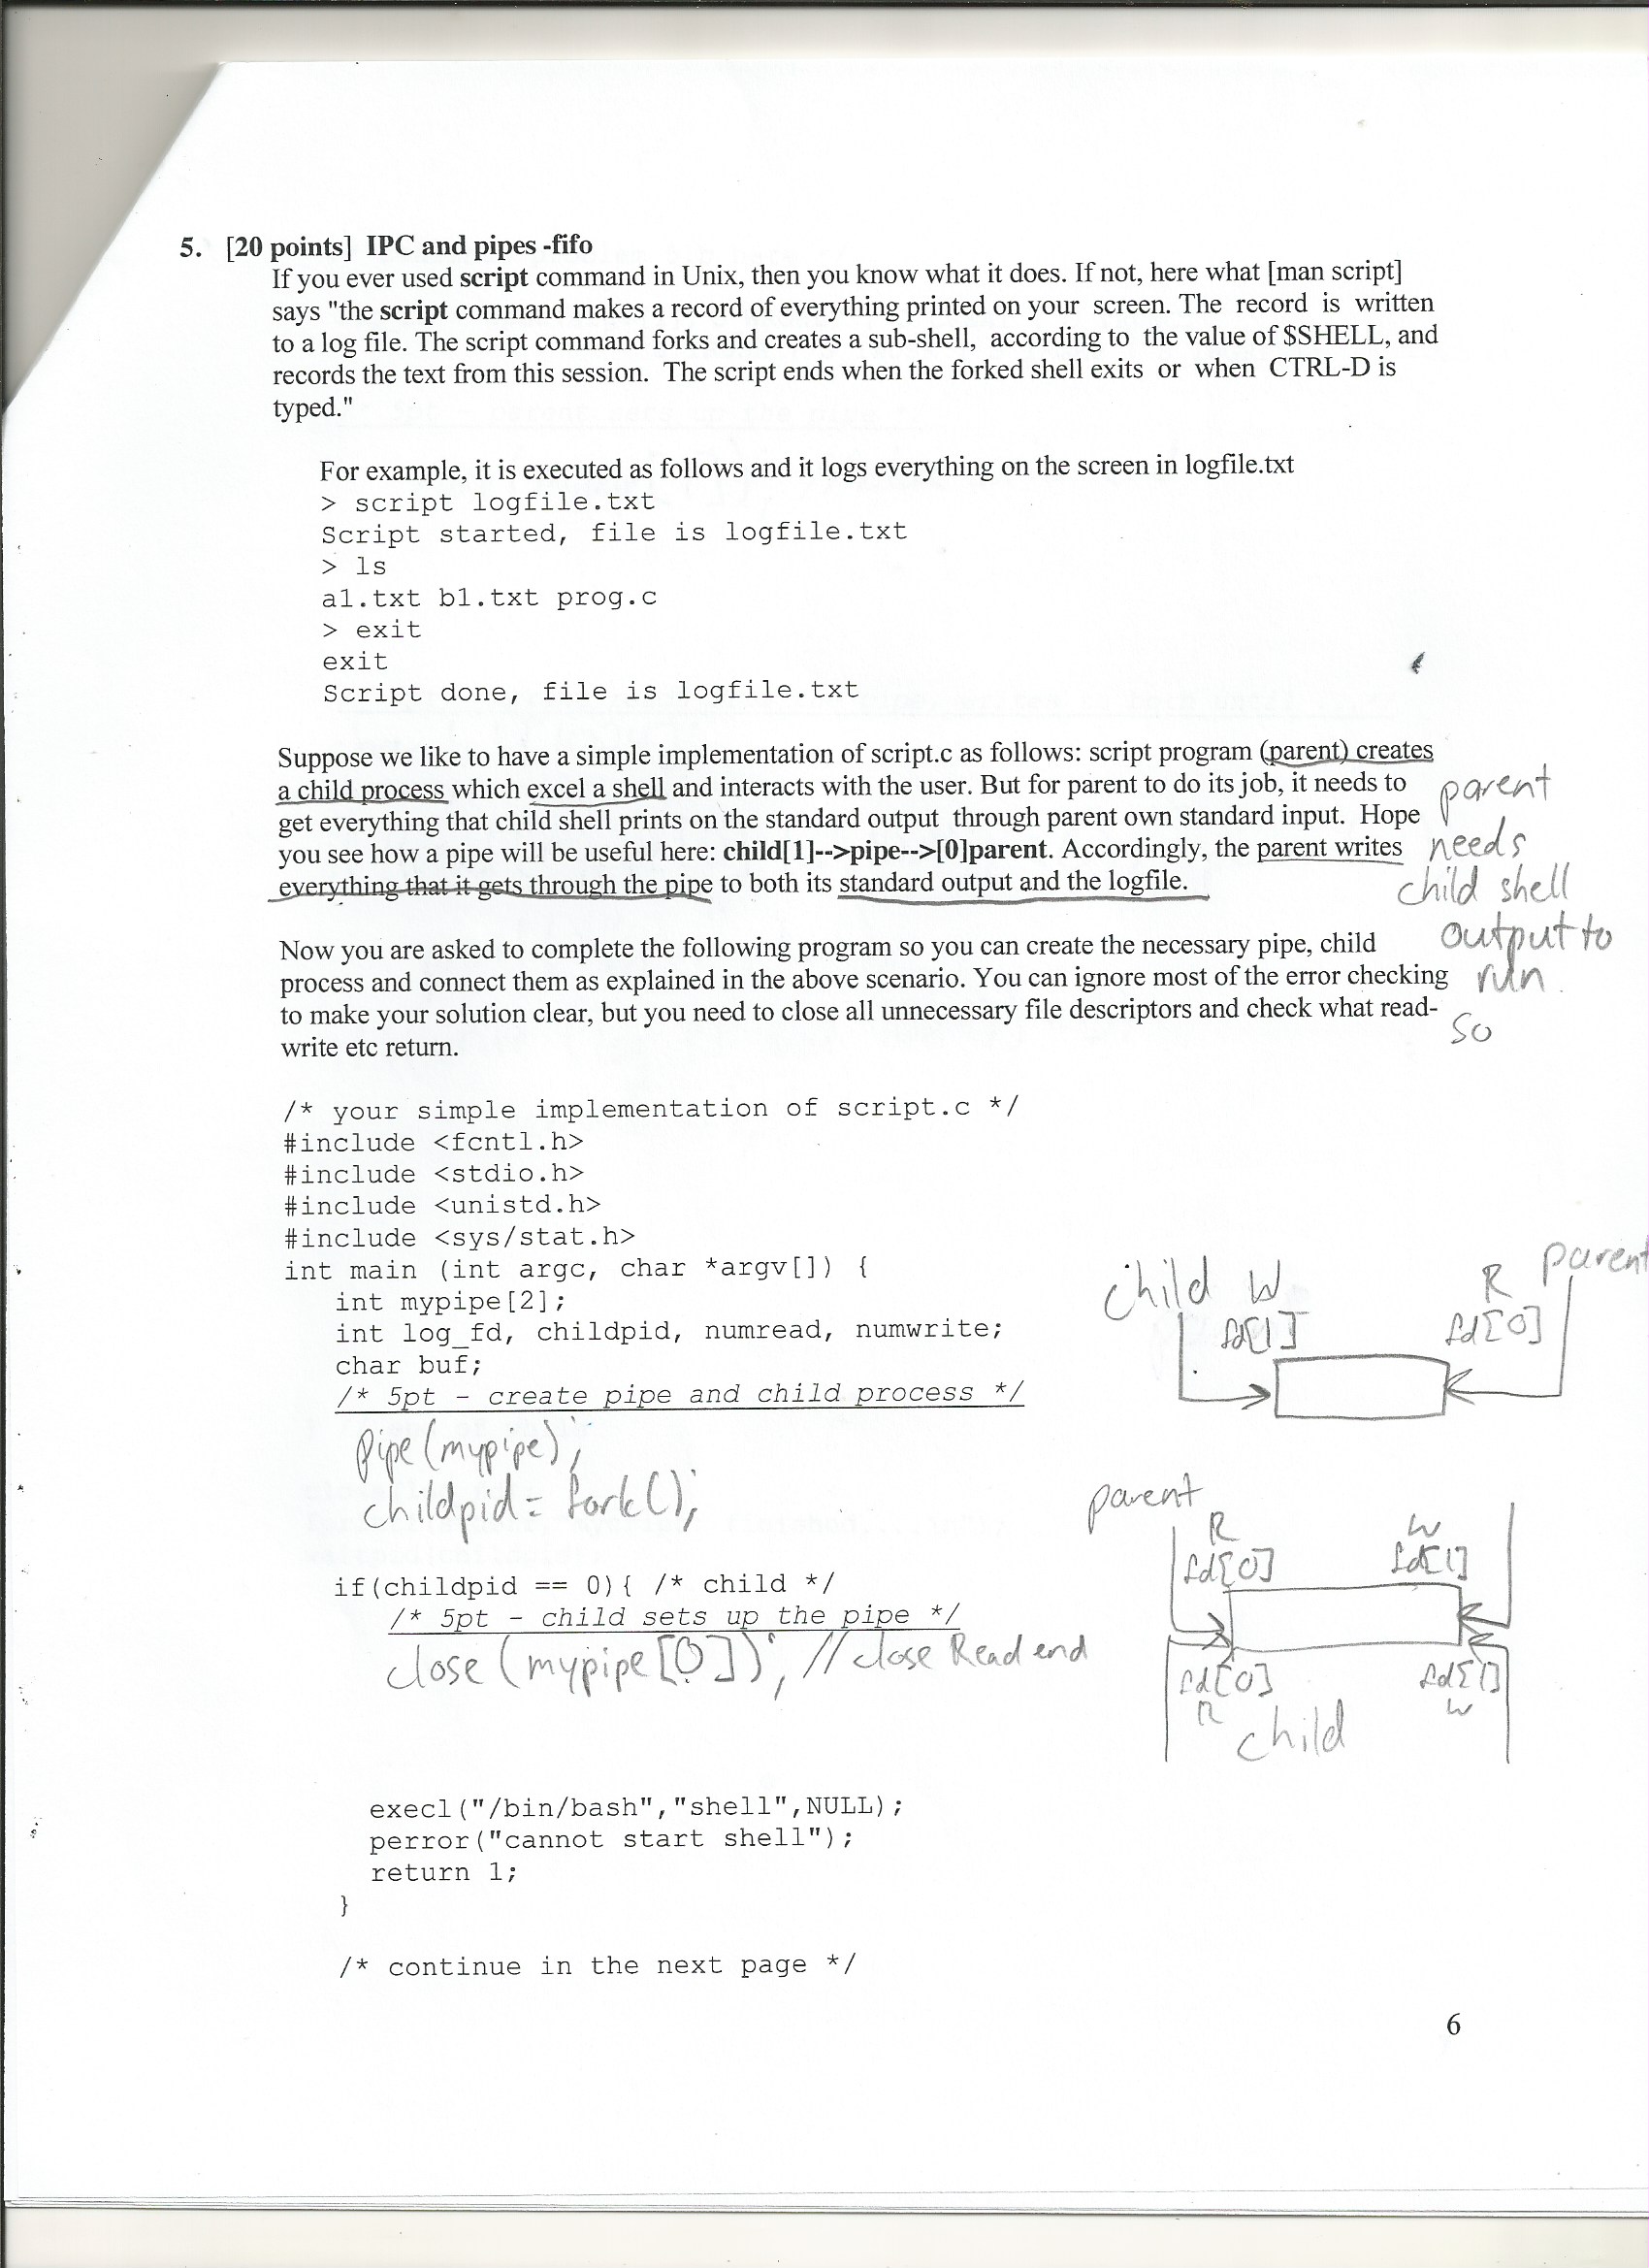 5. [20 points] IPC and pipes -fifo
If you ever used script command in Unix, then you know what it does. If not, here what [man script]
says "the script command makes a record of everything printed on your screen. The record is written
to a log file. The script command forks and creates a sub-shell, according to the value of $SHELL, and
records the text from this session. The script ends when the forked shell exits or when CTRL-D is
typed."
For example, it is executed as follows and it logs everything on the screen in logfile.txt
> script logfile.txt
Script started, file is logfile.txt
> ls
a1.txt b1.txt prog.c
> exit
exit
Script done, file is logfile.txt
Suppose we like to have a simple implementation of script.c as follows: script program (parent) creates
a child process which excel a shell and interacts with the user. But for parent to do its job, it needs to
get everything that child shell prints on the standard output through parent own standard input. Hope
you see how a pipe will be useful here: child[1]-->pipe-->[0]parent. Accordingly, the parent writes
everything that it gets through the pipe to both its standard output and the logfile.
parent
needs
child shell
output to
run
so
Now you are asked to complete the following program so you can create the necessary pipe, child
process and connect them as explained in the above scenario. You can ignore most of the error checking
to make your solution clear, but you need to close all unnecessary file descriptors and check what read-
write etc return.
/* your simple implementation of script.c */
#include <fcntl.h>
#include <stdio.h>
#include <unistd.h>
#include <sys/stat.h>
int main (int argc, char *argv[]) {
int mypipe[2];
int log_fd, childpid, numread, numwrite;
char buf;
/* 5pt - create pipe and child process */
child W R parent
fd[1] fd[0]
pipe(mypipe);
childpid = fork();
parent
R W
fd[0] fd[1]
if(childpid == 0){ /* child */
/* 5pt - child sets up the pipe */
close(mypipe[0]); // close Read end
fd[0] fd[1]
R W
child
execl("/bin/bash","shell",NULL);
perror("cannot start shell");
return 1;
}
/* continue in the next page */
6